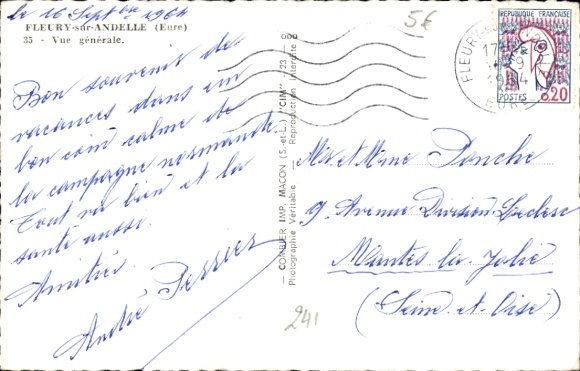 le 16 Septbre 1964
FLEURY-sur-ANDELLE (Eure)
35 - Vue générale.
Bon souvenir de
vacances dans un
bon coin calme de
la campagne normande.
Tout va bien et la
santé aussi.
Amitiés
André Perrier
COMBIER IMP. MACON (S.-et-L.) "CIM" 23
Photographie Véritable - Reproduction Interdite
5€
FLEURY
17
1964
EURE
REPUBLIQUE FRANÇAISE
POSTES 0.20
Mr et Mme Ponche
9 Avenue Division Leclerc
Mantes la Jolie
(Seine et Oise)
241